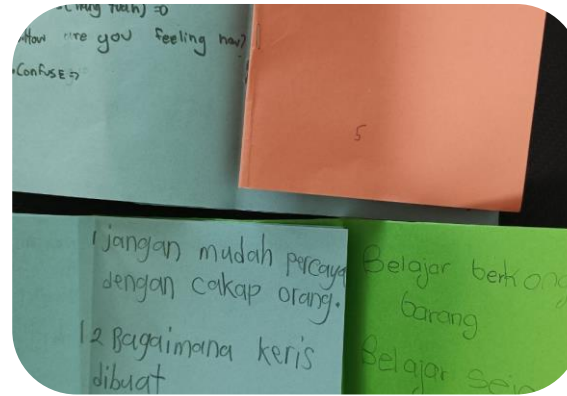 (Hug Tuah) =D
How are you feeling now?
Confuse =>
5
1 jangan mudah percaya
dengan cakap orang.
2 Bagaimana keris
dibuat
Belajar
barang
Belajar